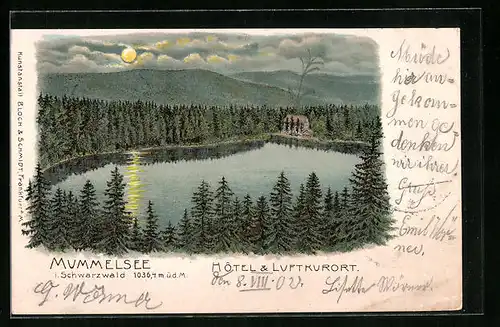 Kunstanstalt BLOCH & SCHMIDT, Frankfurt a. M.
MUMMELSEE
i. SCHWARZWALD 1036,4 m ü.d.M.
HÔTEL & LUFTKURORT.
den 8. VIII. 02.
Müde
hier an-
gekom-
men ge-
denken
wir ihrer
Gruß
Emil
Lisette